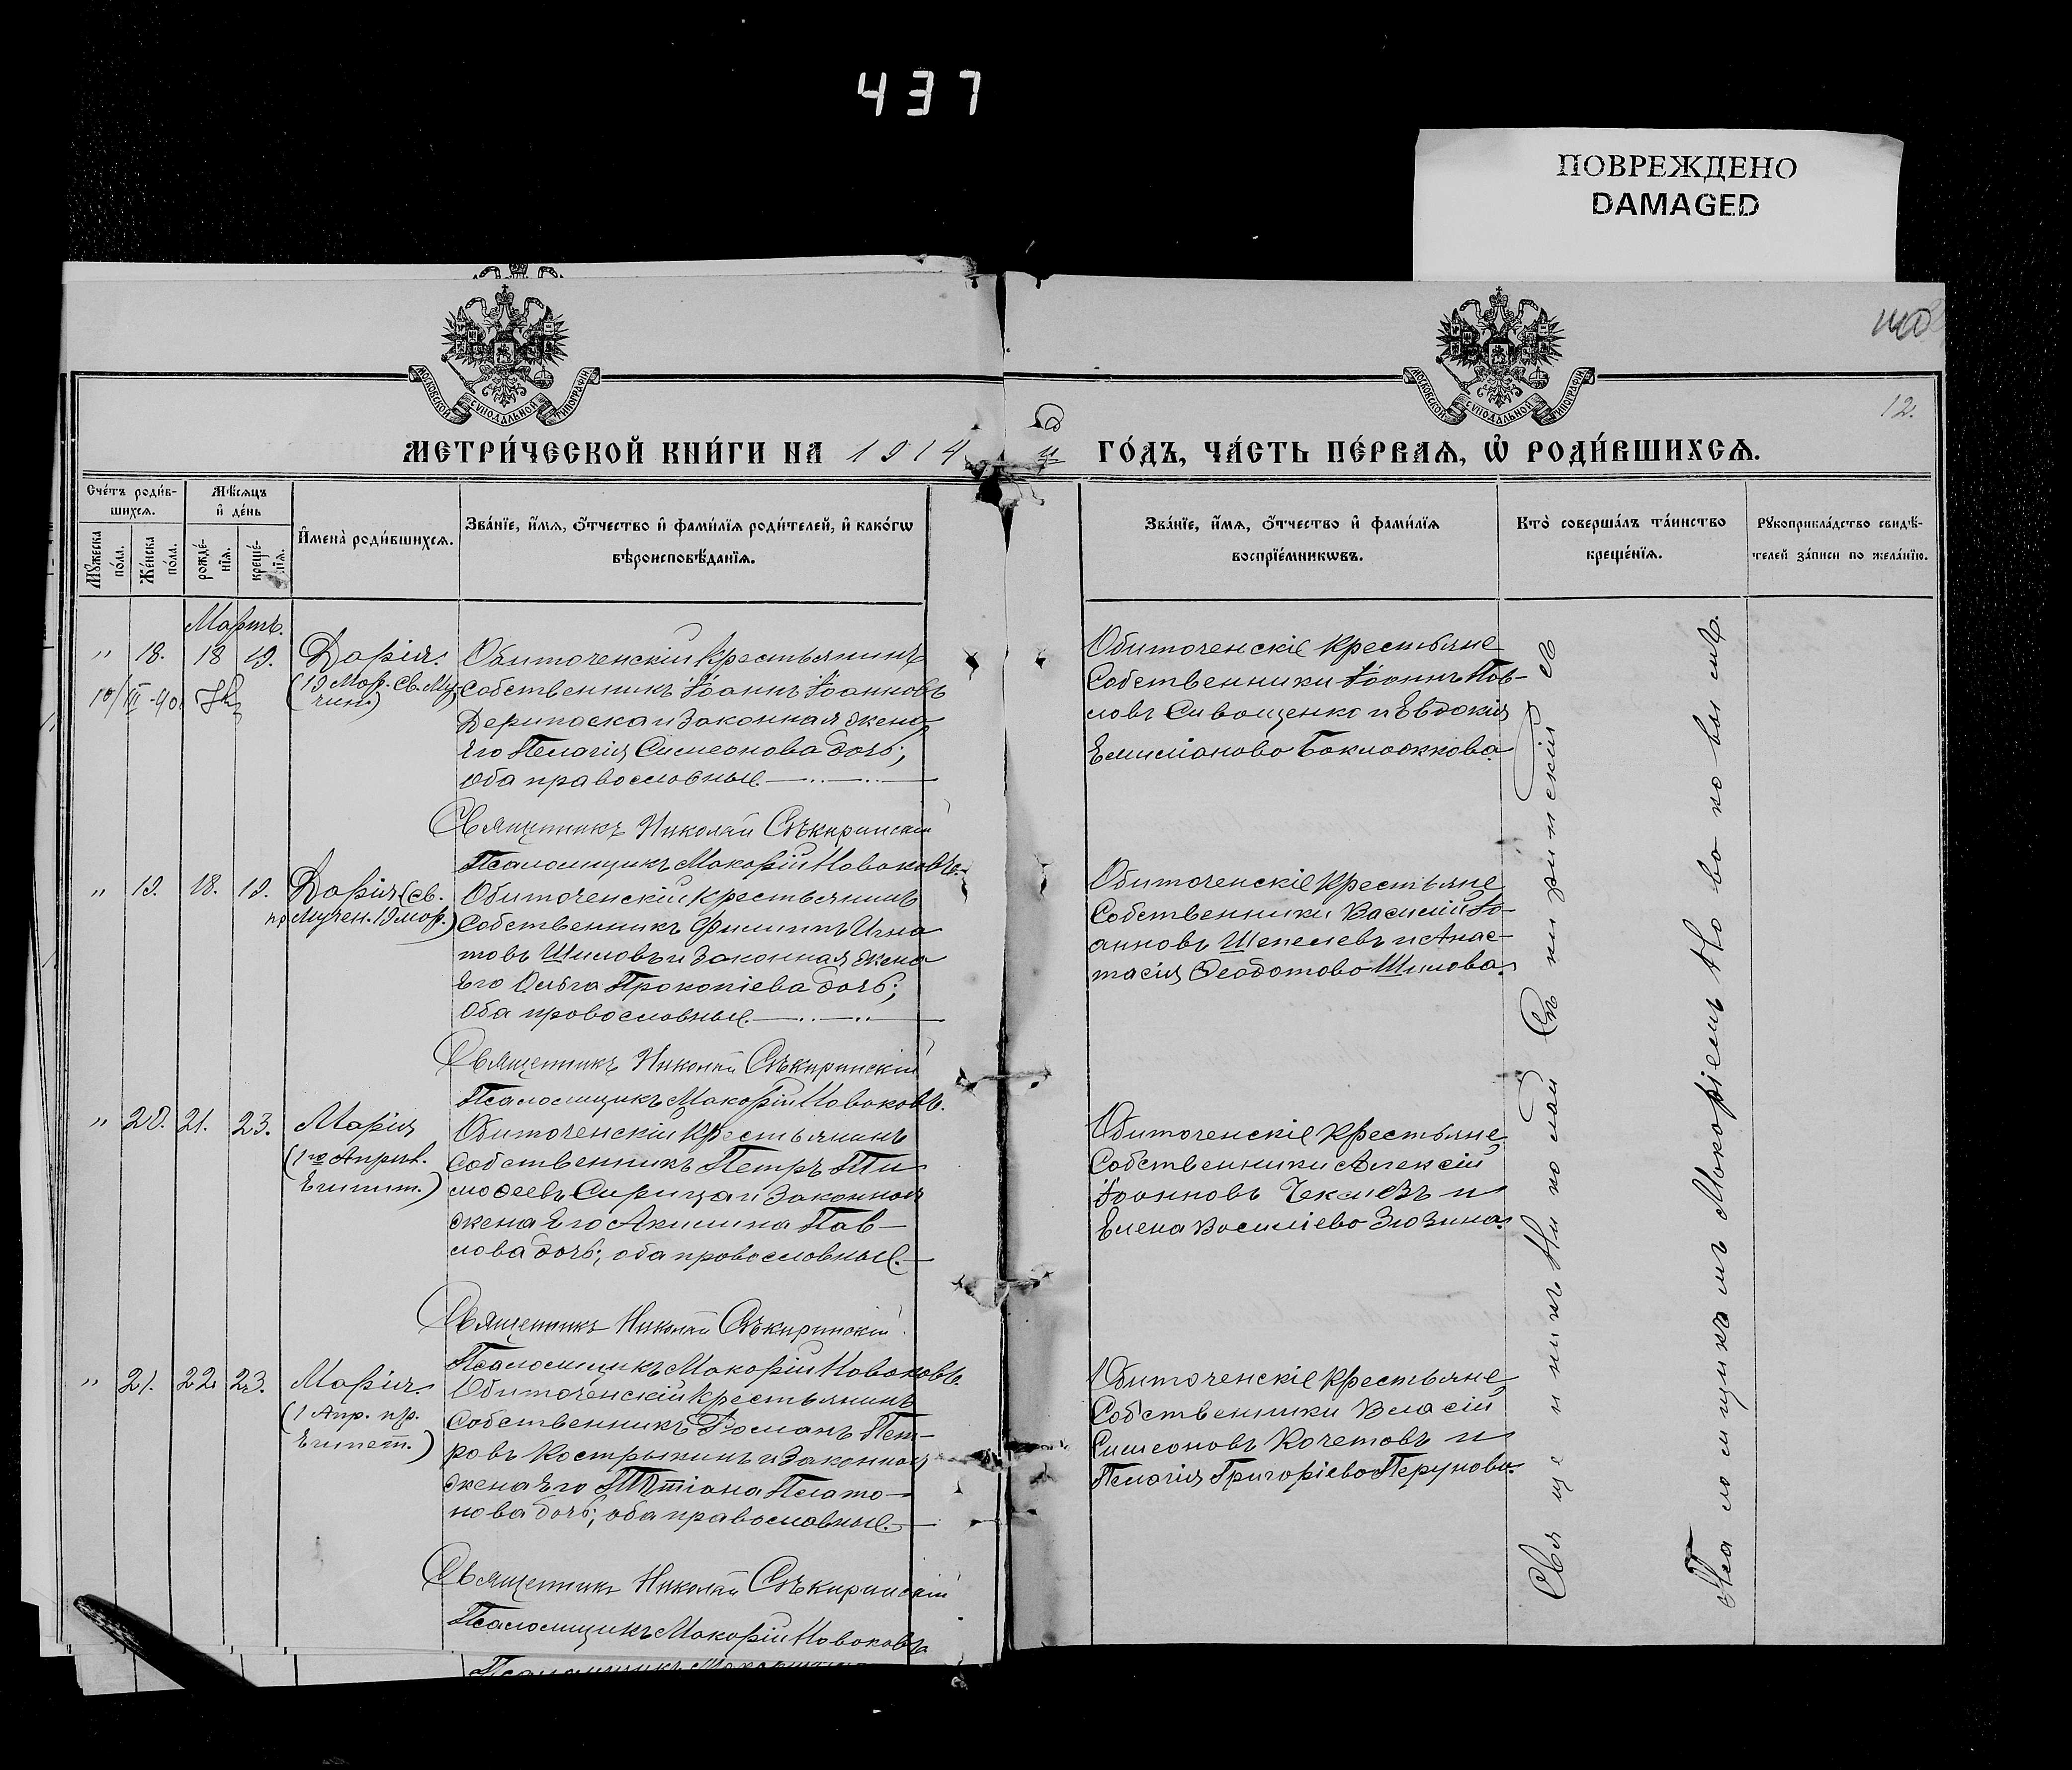 437
ПОВРЕЖДЕНО
DAMAGED
МОСКОВСКОЙ СѴНОДАЛЬНОЙ ТИПОГРАФІИ
МОСКОВСКОЙ СѴНОДАЛЬНОЙ ТИПОГРАФІИ
12.
МЕТРИ́ЧЕСКОЙ КНИ́ГИ НА 1914 й ГО́ДЪ, ЧА́СТЬ ПЕ́РВАѦ, Ѡ҆ РОДИ́ВШИХСѦ.
Сче́тъ роди́в-
шихсѧ.
Мꙋ́жеска по́ла.
Же́нска по́ла.
Мѣ́сѧцъ
и҆ де́нь
рожде́-
нїѧ.
креще́-
нїѧ.
И҆мена̀ роди́вшихсѧ.
Зва́нїе, и҆́мѧ, ѻ҆́тчество и҆ фами́лїѧ роди́телей, и҆ како́гѡ
вѣроисповѣ́данїѧ.
Зва́нїе, и҆́мѧ, ѻ҆́тчество и҆ фами́лїѧ
воспрїе́мникѡвъ.
Кто̀ соверша́лъ та́инство
креще́нїѧ.
Рꙋкоприкла́дство свидѣ́-
телей за́писи по жела́нїю.
Мартъ.
" 18. 18 19. Дарія.
(19 Мар. св. Му-
чен.)
Обиточенскій крестьянинъ
собственникъ Іоаннъ Іоанновъ
Дерипаска и законная жена
его Пелагія Симеонова дочь;
оба православные.
Обиточенскіе крестьяне
собственники Іоаннъ Пав-
ловъ Сивощенко и Евдокія
Емиліанова Баклажкова.
Священникъ Николай Сѣкиринскій
Псаломщикъ Макарій Новаковъ.
" 19. 18. 19. Дарія (св.
мучен. 19 мар.)
Обиточенскій крестьянинъ
собственникъ Филиппъ Игна
товъ Шиловъ и законная жена
его Ольга Прокопіева дочь;
оба православные.
Обиточенскіе крестьяне
собственники Василій Іо-
анновъ Шепелевъ и Анас-
тасія Ѳеодотова Шилова.
Священникъ Николай Сѣкиринскій
Псаломщикъ Макарій Новаковъ.
" 20. 21. 23. Марія
(1го Апрѣл.
Египет.)
Обиточенскій крестьянинъ
собственникъ Петръ Ти
моѳеевъ Сирица и законная
жена его Акилина Пав-
лова дочь; оба православные.
Обиточенскіе крестьяне
собственники Алексій
Іоанновъ и
Елена Василіева Зюзина.
Священникъ Николай Сѣкиринскій
Псаломщикъ Макарій Новаковъ.
" 21. 22. 23. Марія
(1 Апр. пр.
Египет.)
Обиточенскій крестьянинъ
собственникъ Романъ Пет-
ровъ Кострыкинъ и законная
жена его Татіана Плато-
нова дочь; оба православные.
Обиточенскіе крестьяне
собственники Власій
Симеоновъ Кочетовъ и
Пелагія Григоріева Перунова.
Священникъ Николай Сѣкиринскій
Псаломщикъ Макарій Новаковъ
Священникъ Николай Сѣкиринскій съ
Псаломщикомъ Макаріемъ Новаковымъ.